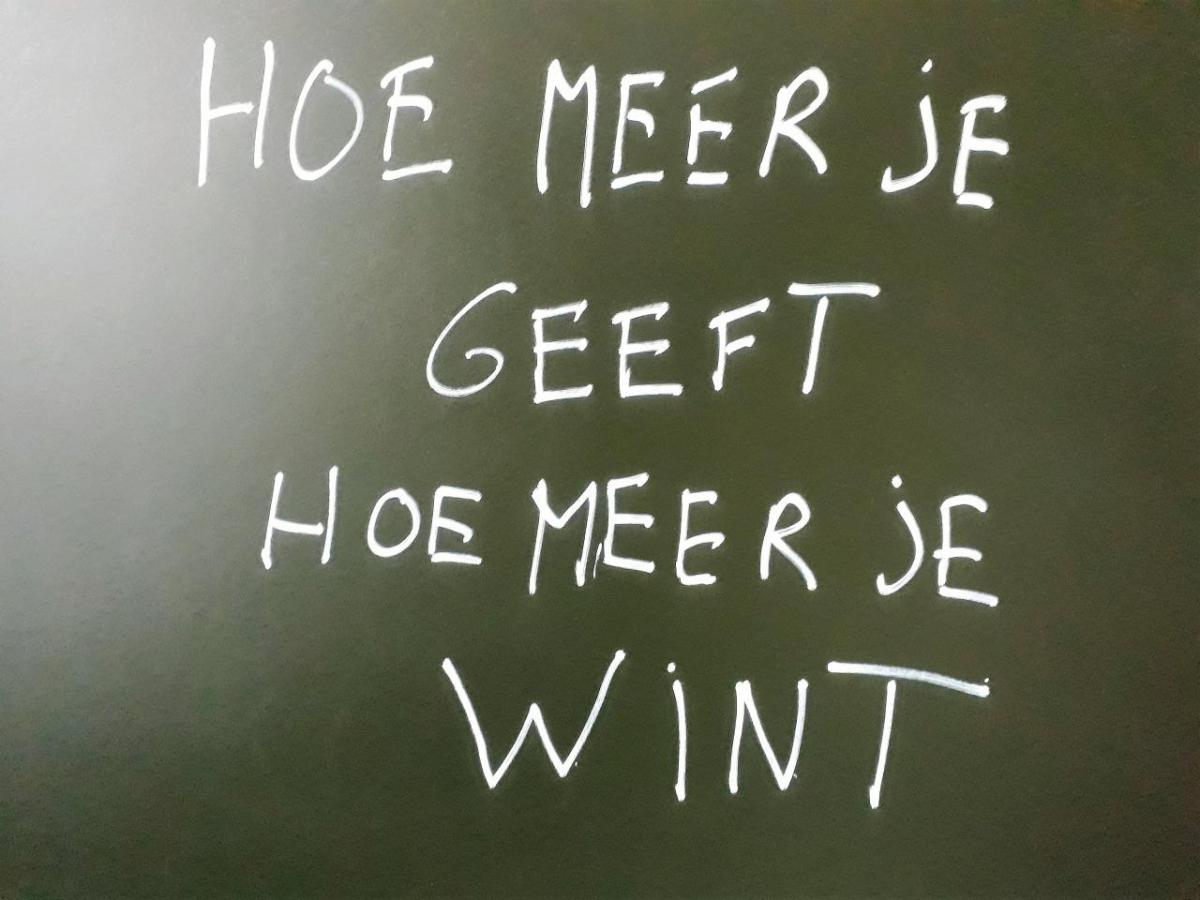 HOE MEER JE
GEEFT
HOE MEER JE
WINT